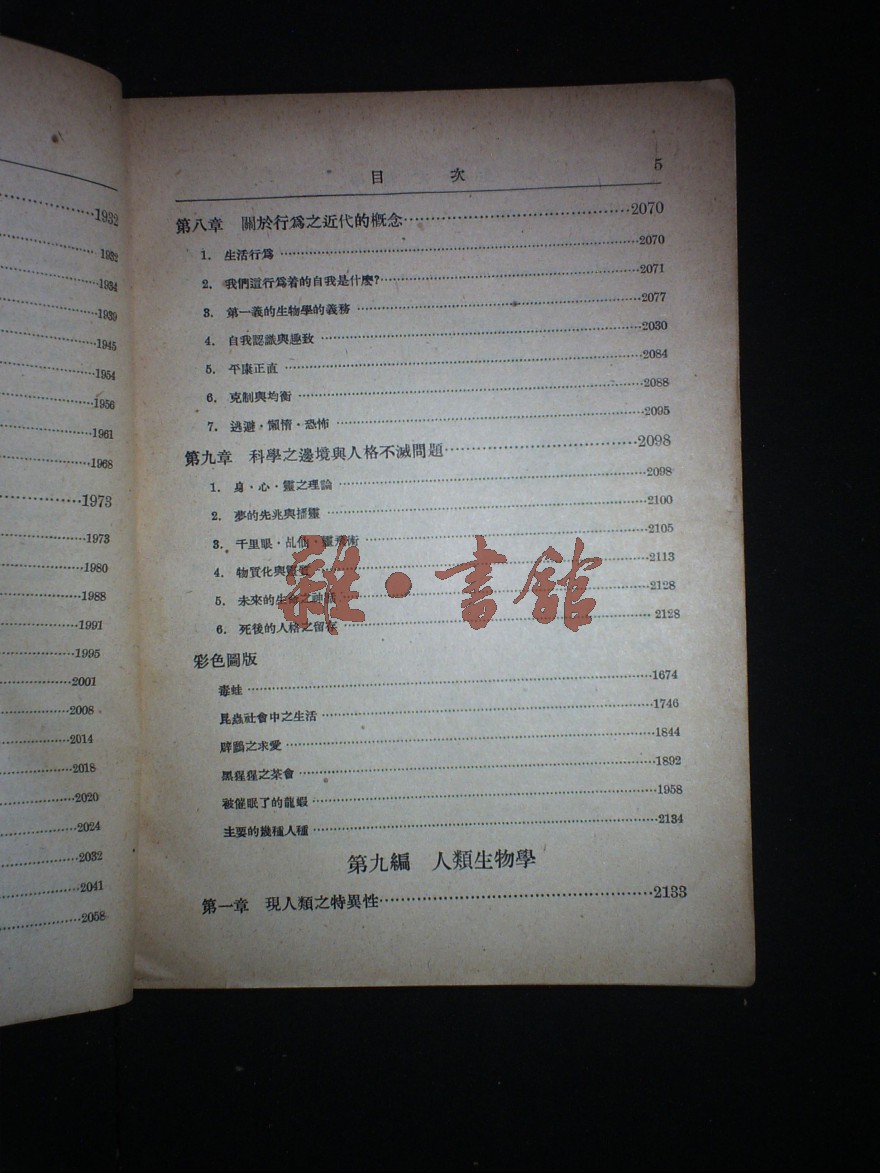 1932
1932
1934
1939
1945
1954
1956
1961
1968
1973
1973
1980
1988
1991
1995
2001
2008
2014
2018
2020
2024
2032
2041
2058
目 次 5
第八章 關於行爲之近代的概念 2070
1. 生活行爲 2070
2. 我們這行爲着的自我是什麼? 2071
3. 第一義的生物學的義務 2077
4. 自我認識與趣致 2030
5. 平康正直 2084
6. 克制與均衡 2088
7. 逃避·懶惰·恐怖 2095
第九章 科學之邊境與人格不滅問題 2098
1. 身·心·靈之理論 2098
2. 夢的先兆與播靈 2100
3. 千里眼·乩仙·靈 術 2105
4. 物質化與靈質 2113
5. 未來的生命之神話 2128
6. 死後的人格之留存 2128
彩色圖版
毒蛙 1674
昆蟲社會中之生活 1746
鸊鷉之求愛 1844
黑猩猩之茶會 1892
被催眠了的龍蝦 1958
主要的幾種人種 2134
第九編 人類生物學
第一章 現人類之特異性 2133
雜·書館